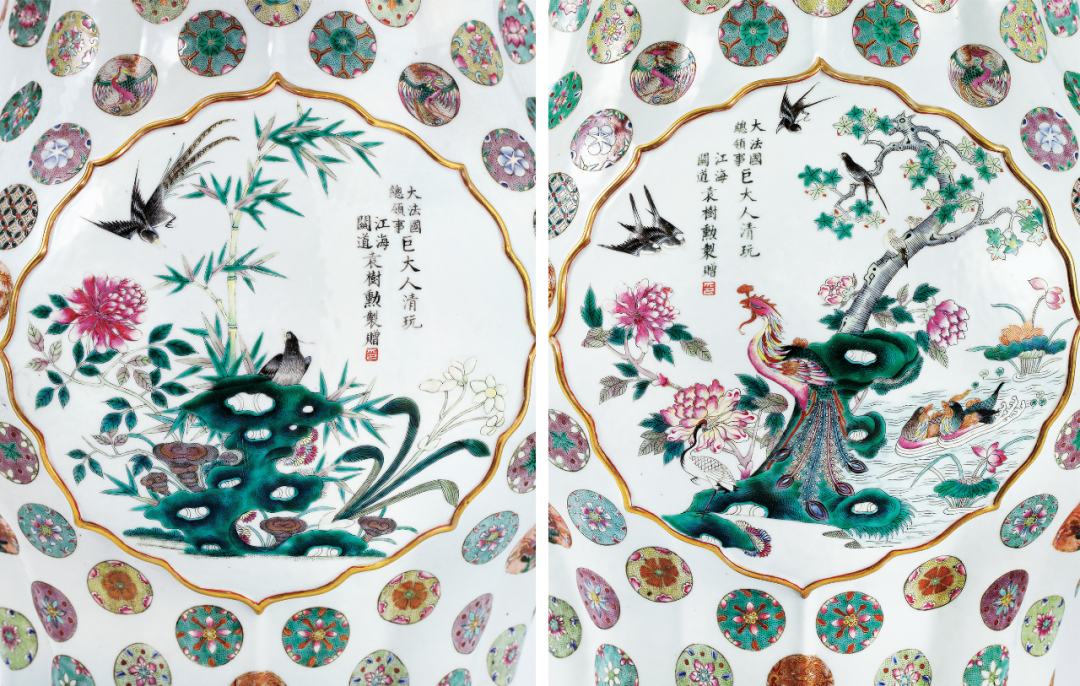 大法國
總領事
巨大人清玩
江海
關道
袁樹勲製贈
大法國
總領事
巨大人清玩
江海
關道
袁樹勲製贈